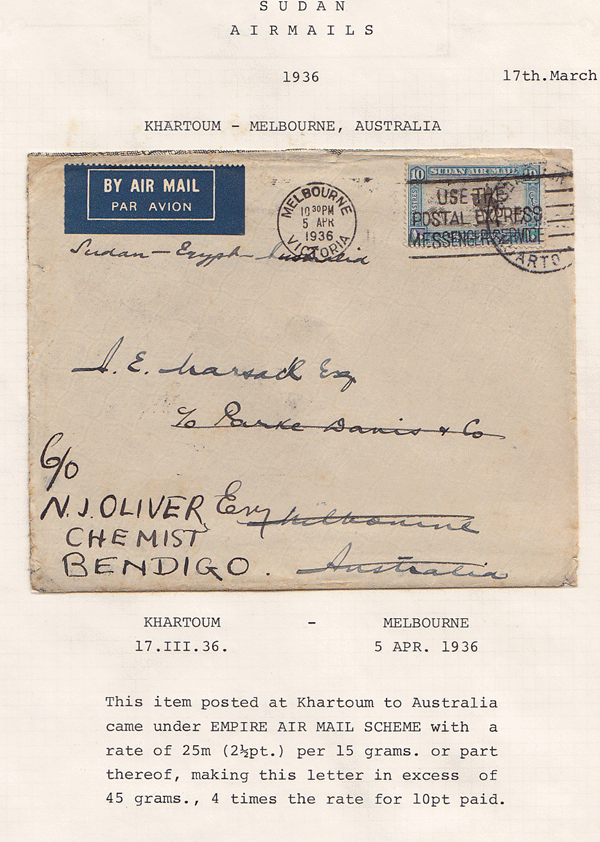 SUDAN
AIRMAILS
1936
17th.March
KHARTOUM - MELBOURNE, AUSTRALIA
BY AIR MAIL
PAR AVION
MELBOURNE
10 30PM
5 APR
1936
VICTORIA
10 SUDAN AIR MAIL 10
USE THE
POSTAL EXPRESS
MESSENGER SERVICE
ARTO
Sudan - Egypt - Australia
A. E. Marsack Esq
c/o Parke Davis & Co
C/o
N. J. OLIVER
CHEMIST
BENDIGO.
Melbourne
Australia
KHARTOUM - MELBOURNE
17.III.36. 5 APR. 1936
This item posted at Khartoum to Australia
came under EMPIRE AIR MAIL SCHEME with a
rate of 25m (2½pt.) per 15 grams. or part
thereof, making this letter in excess of
45 grams., 4 times the rate for 10pt paid.